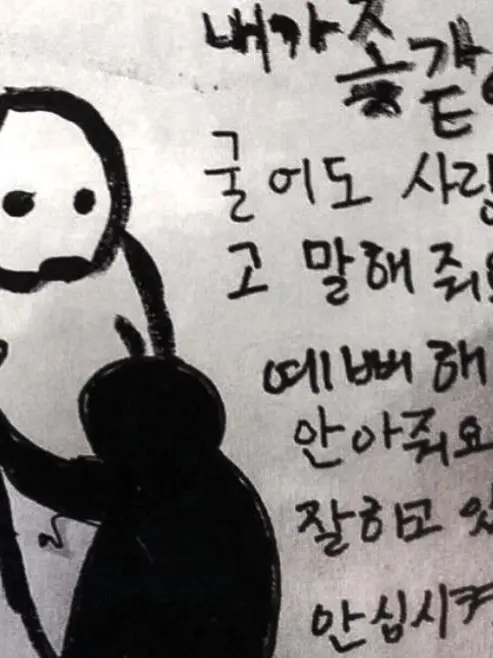 내가 좆같
굴어도 사랑
고 말해 줘요
예뻐해
안아줘요
잘하고 있
안심시켜